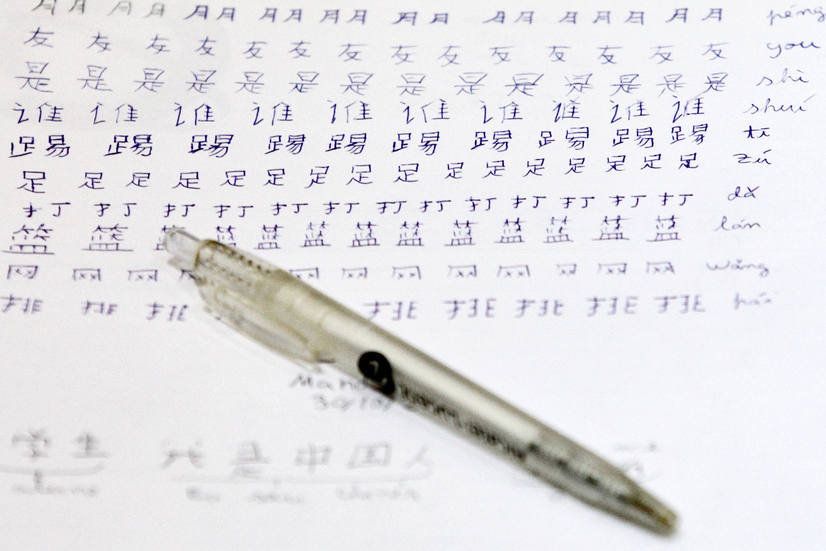 朋 朋 朋 朋 朋 朋 朋 朋 朋 朋 péng
友 友 友 友 友 友 友 友 友 友 友 友 友 友 you
是 是 是 是 是 是 是 是 是 是 是 是 是 是 shì
谁 谁 谁 谁 谁 谁 谁 谁 谁 谁 shuí
踢 踢 踢 踢 踢 踢 踢 踢 踢 踢 tī
足 足 足 足 足 足 足 足 足 足 足 足 足 足 足 足 zú
打 打 打 打 打 打 打 打 打 打 打 打 打 dǎ
篮 篮 篮 篮 篮 篮 篮 篮 篮 篮 篮 篮 篮 lán
网 网 网 网 网 网 网 网 网 网 网 wǎng
排 排 排 排 排 排 排 排 pái
学生 我是中国人